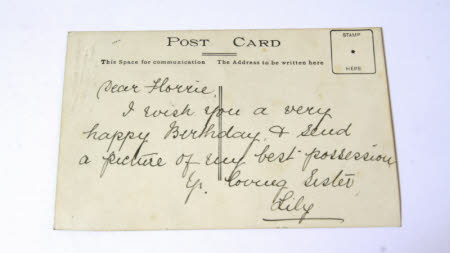 POST CARD
STAMP
HERE
This Space for communication The Address to be written here
Dear Florrie,
I wish you a very
happy Birthday & send
a picture of my best possession
Yr. loving Sister
Lily